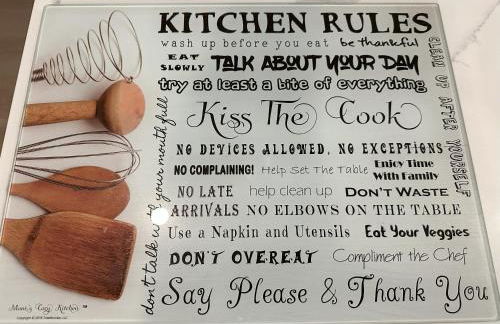 KITCHEN RULES
wash up before you eat be thankful
EAT SLOWLY TALK ABOUT YOUR DAY
try at least a bite of everything
Kiss The Cook
NO DEVICES ALLOWED, NO EXCEPTIONS
NO COMPLAINING! Help Set The Table Enjoy Time With Family
NO LATE ARRIVALS help clean up DON'T WASTE
NO ELBOWS ON THE TABLE
Use a Napkin and Utensils Eat Your Veggies
DON'T OVEREAT Compliment the Chef
Say Please & Thank You
don't talk with your mouth full
CLEAN UP AFTER YOURSELF
Mom's Cozy Kitchen ™